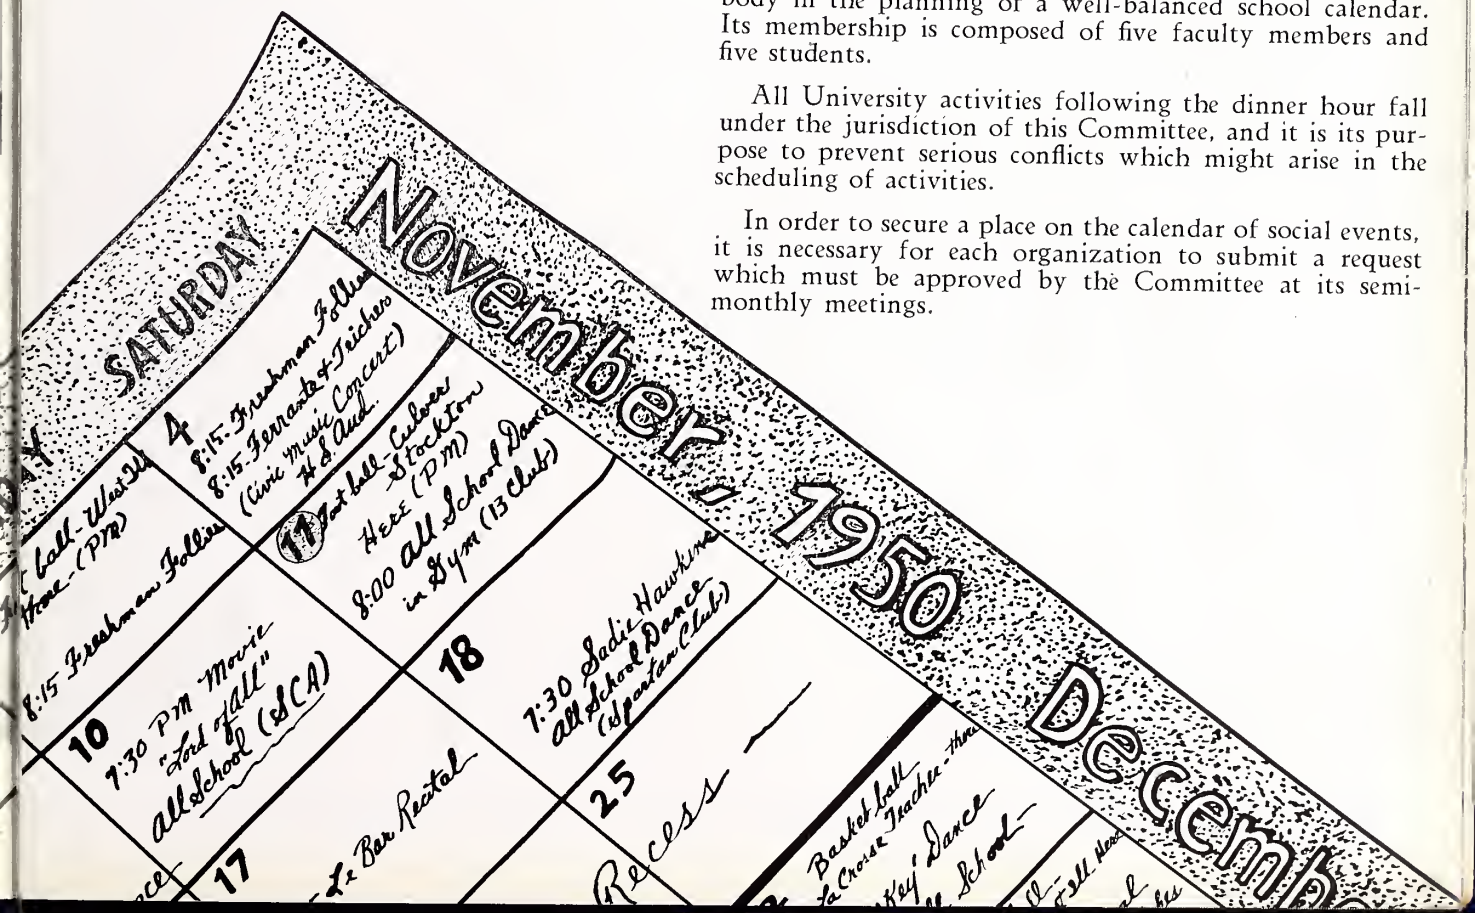 body in the planning of a well-balanced school calendar.
Its membership is composed of five faculty members and
five students.
All University activities following the dinner hour fall
under the jurisdiction of this Committee, and it is its pur-
pose to prevent serious conflicts which might arise in the
scheduling of activities.
In order to secure a place on the calendar of social events,
it is necessary for each organization to submit a request
which must be approved by the Committee at its semi-
monthly meetings.
November, 1950
SATURDAY
4
8:15-Freshman Follies
8:15-Ferrante & Teicher
(Civic Music Concert)
H S Aud.
ball-West
Home-(PM)
8:15 Freshman Follies
11
Foot ball-Culver
Stockton
HERE (PM)
8:00 All School Dance
in Gym (13 Club)
10
7:30 PM Movie
"Lord of All"
All School (SCA)
18
7:30 Sadie Hawkins
All School Dance
(Spartan Club)
17
Le Bar Recital
25
Recess
December
Basket ball
La Crosse Teacher-there
Key' Dance
School-
Here